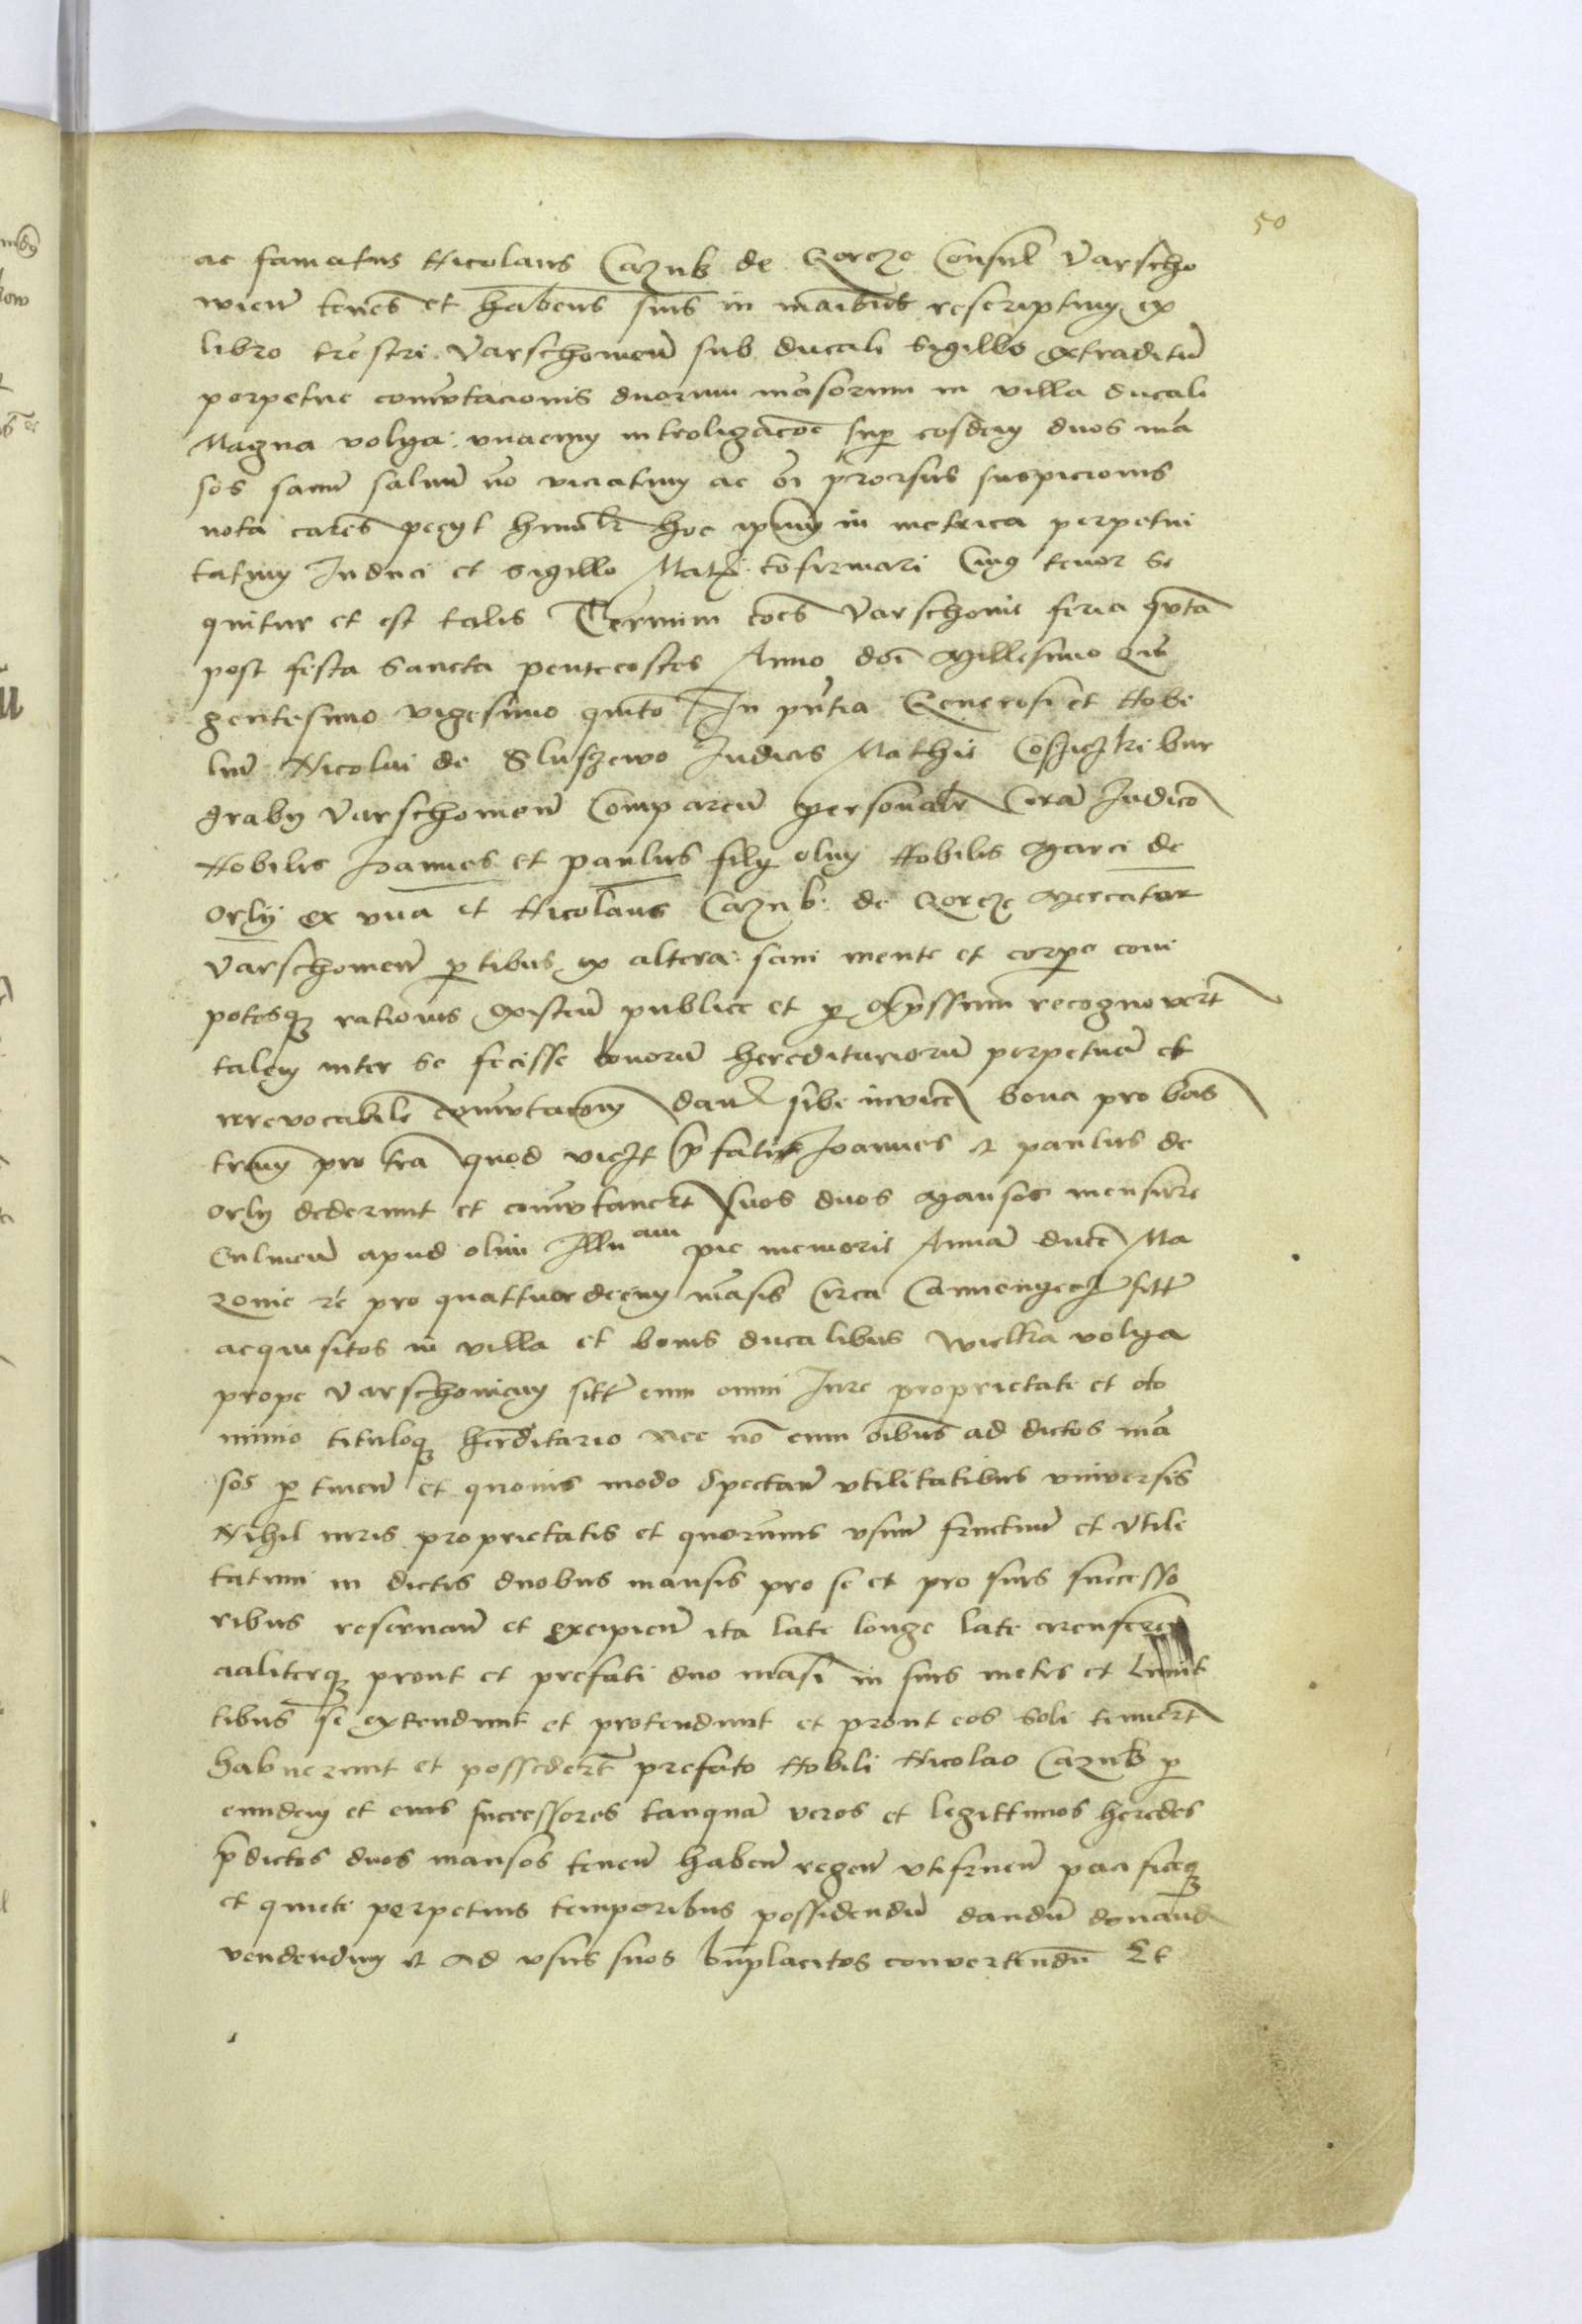 50
ac famatus Nicolaus Cazub de Gorcze Consul Varscho
wien̄ tenēs et habens suis in mаībus rescriptum ex
libro trēstri Varschowien̄ sub ducali sigillo extraditū
perpetue com̄utacionis duorum māsorum in villa ducali
Magna volya unacum introligacōe sup eosdem duos mā
sos sanū saluū nō viciatum ac ōi prorsus suspicionis
nota carēs pecyt humilr hoc ipsum in metrica perpetui
tatum Induci et sigillo Matis cōfirmari Cuius tenor se
quitur et est talis Termini cōes Varschovie feria qnta
post festa Sancta pentecostes Anno dnī Millesimo Qui
gentesimo vigesimo quīto In pn̄tia Generosi et Nobi
liū Nicolai de Sluszewo Iudicis Mathie Cosziczki bur
graby Varschowien̄ Comparen̄ personalr Corā Iudicio
Nobiles Ioannes et paulus fily olim Nobilis Marci de
Orly ex una et Nicolaus Cazub de Gorcze Mercator
Varschowien̄ ptibus ex altera sani mente et corpe com
potesq rationis existen̄ publice et p expssum recognovert
talem inter se fecisse bonorū hereditariorū perpetuā et
irrevocabilē com̄utacōem dan̄ sibi invicē bona pro bōis
tram pro tra quod vicz pfati Ioannes et paulus de
Orly dederunt et com̄utavert suos duos Mansos mensure
Culmen̄ apud olim Illu am pie memorie Annā ducē Ma
zovie rc̄ pro quattuordecim māsis Circa Camonyecz sitt
acquisitos in villa et bonis ducalibus Wielka volya
prope Varschoviam sitt cum omni Iure proprietate et do
minio tituloq herditario nec nō cum ōibus ad dictos mā
sos ptinen̄ et quovis modo spectan̄ utilitatibus universis
Nihil iuris proprietatis et quorumvis usuū fructuū et utile
tatum in dictis duobus mansis pro se et pro suis successo
ribus reservan̄ et excipien̄ ita late longe late
aaliterq prout et prefati duo māsi in suis metis et Limit
tibus se extendunt et protendunt et prout eos soli tenuert
habuerunt et possedert prefato Nobili Nicolao Cazub p
eundem et eius successores tanquā veros et legittimos heredes
pdictos duos mansos tenen̄ haben̄ regen̄ utifruen̄ pacificeq
et quiete perpetuis temporibus possidendū dandū donand
vendendum et ad usus suos bn̄placitos convertendū Et